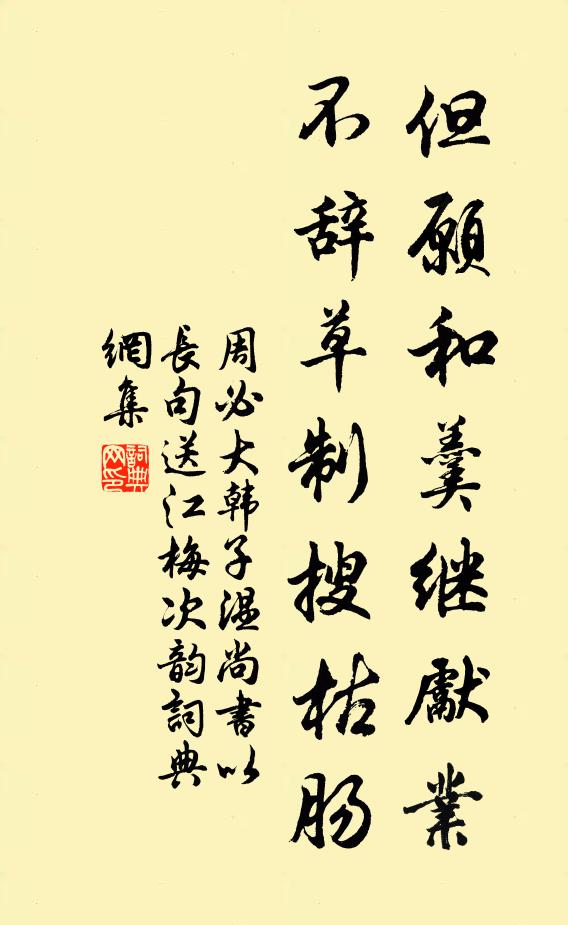 但願和羹继獻業
不辞草制搜枯肠
周必大韩子温尚書以
長句送江梅次韵詞典
網集
詞典
网印